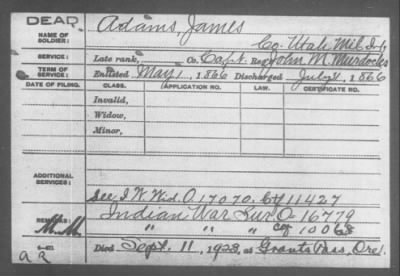 DEAD
NAME OF SOLDIER:
Adams, James
Co. Utah Mil. Inf.
SERVICE:
Late rank, Co. Capt. Reg't John M. Murdocks
TERM OF SERVICE:
Enlisted May 1, 1866 Discharged July 1, 1866
DATE OF FILING. CLASS. APPLICATION NO. LAW. CERTIFICATE NO.
Invalid,
Widow,
Minor,
ADDITIONAL SERVICES:
See I W Wid. O. 17070. Ctf 11427
REMARKS: M.M. Indian War Sur. O- 16779
" " " Ctf 10068
Died Sept. 11, 1923, at Grants Pass, Ore.